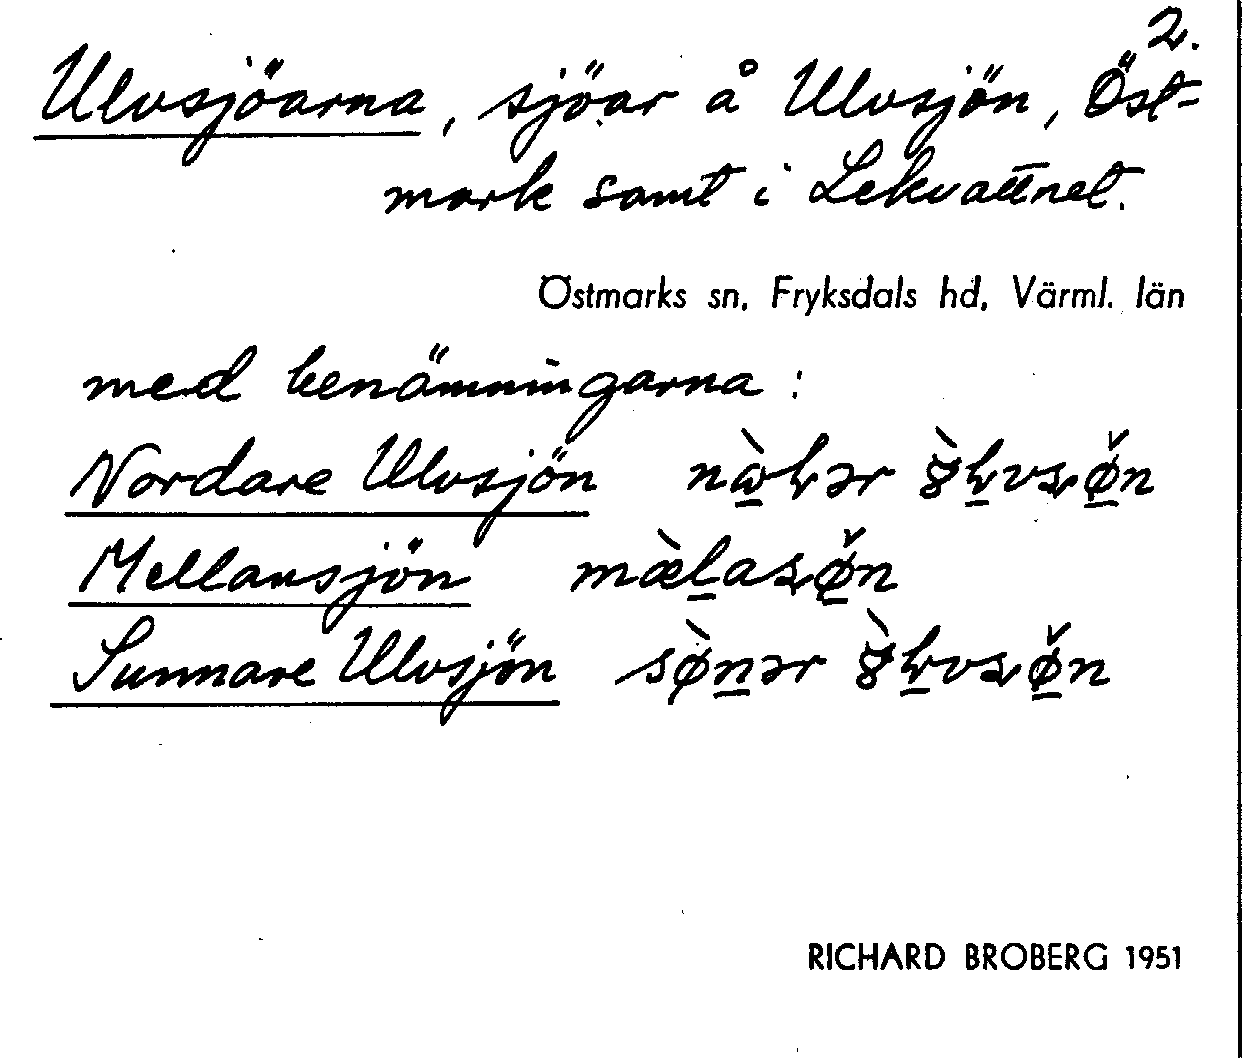 2.
Ulvsjöarna, sjöar å Ulvsjön, Öst-
mark samt i Lekvattnet.
Östmarks sn, Fryksdals hd, Värml. län
med benämningarna:
Nordare Ulvsjön
Mellansjön
Sunnare Ulvsjön
RICHARD BROBERG 1951